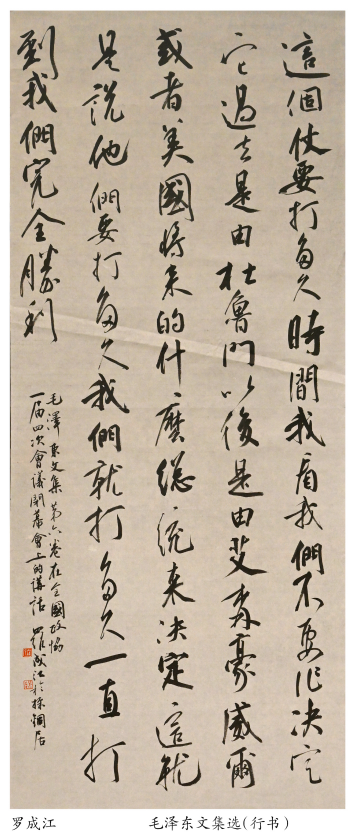 這個仗要打多久時間我看我們不要作決定
它過去是由杜魯門以後是由艾森豪威爾
或者美國將来的什麽總統来決定這就
是説他們要打多久我們就打多久一直打
到我們完全勝利
毛澤東文集第六卷在全國政協
一届四次會議閉幕會上的講話 羅成江於採銅居
罗成江 毛泽东文集选(行书)